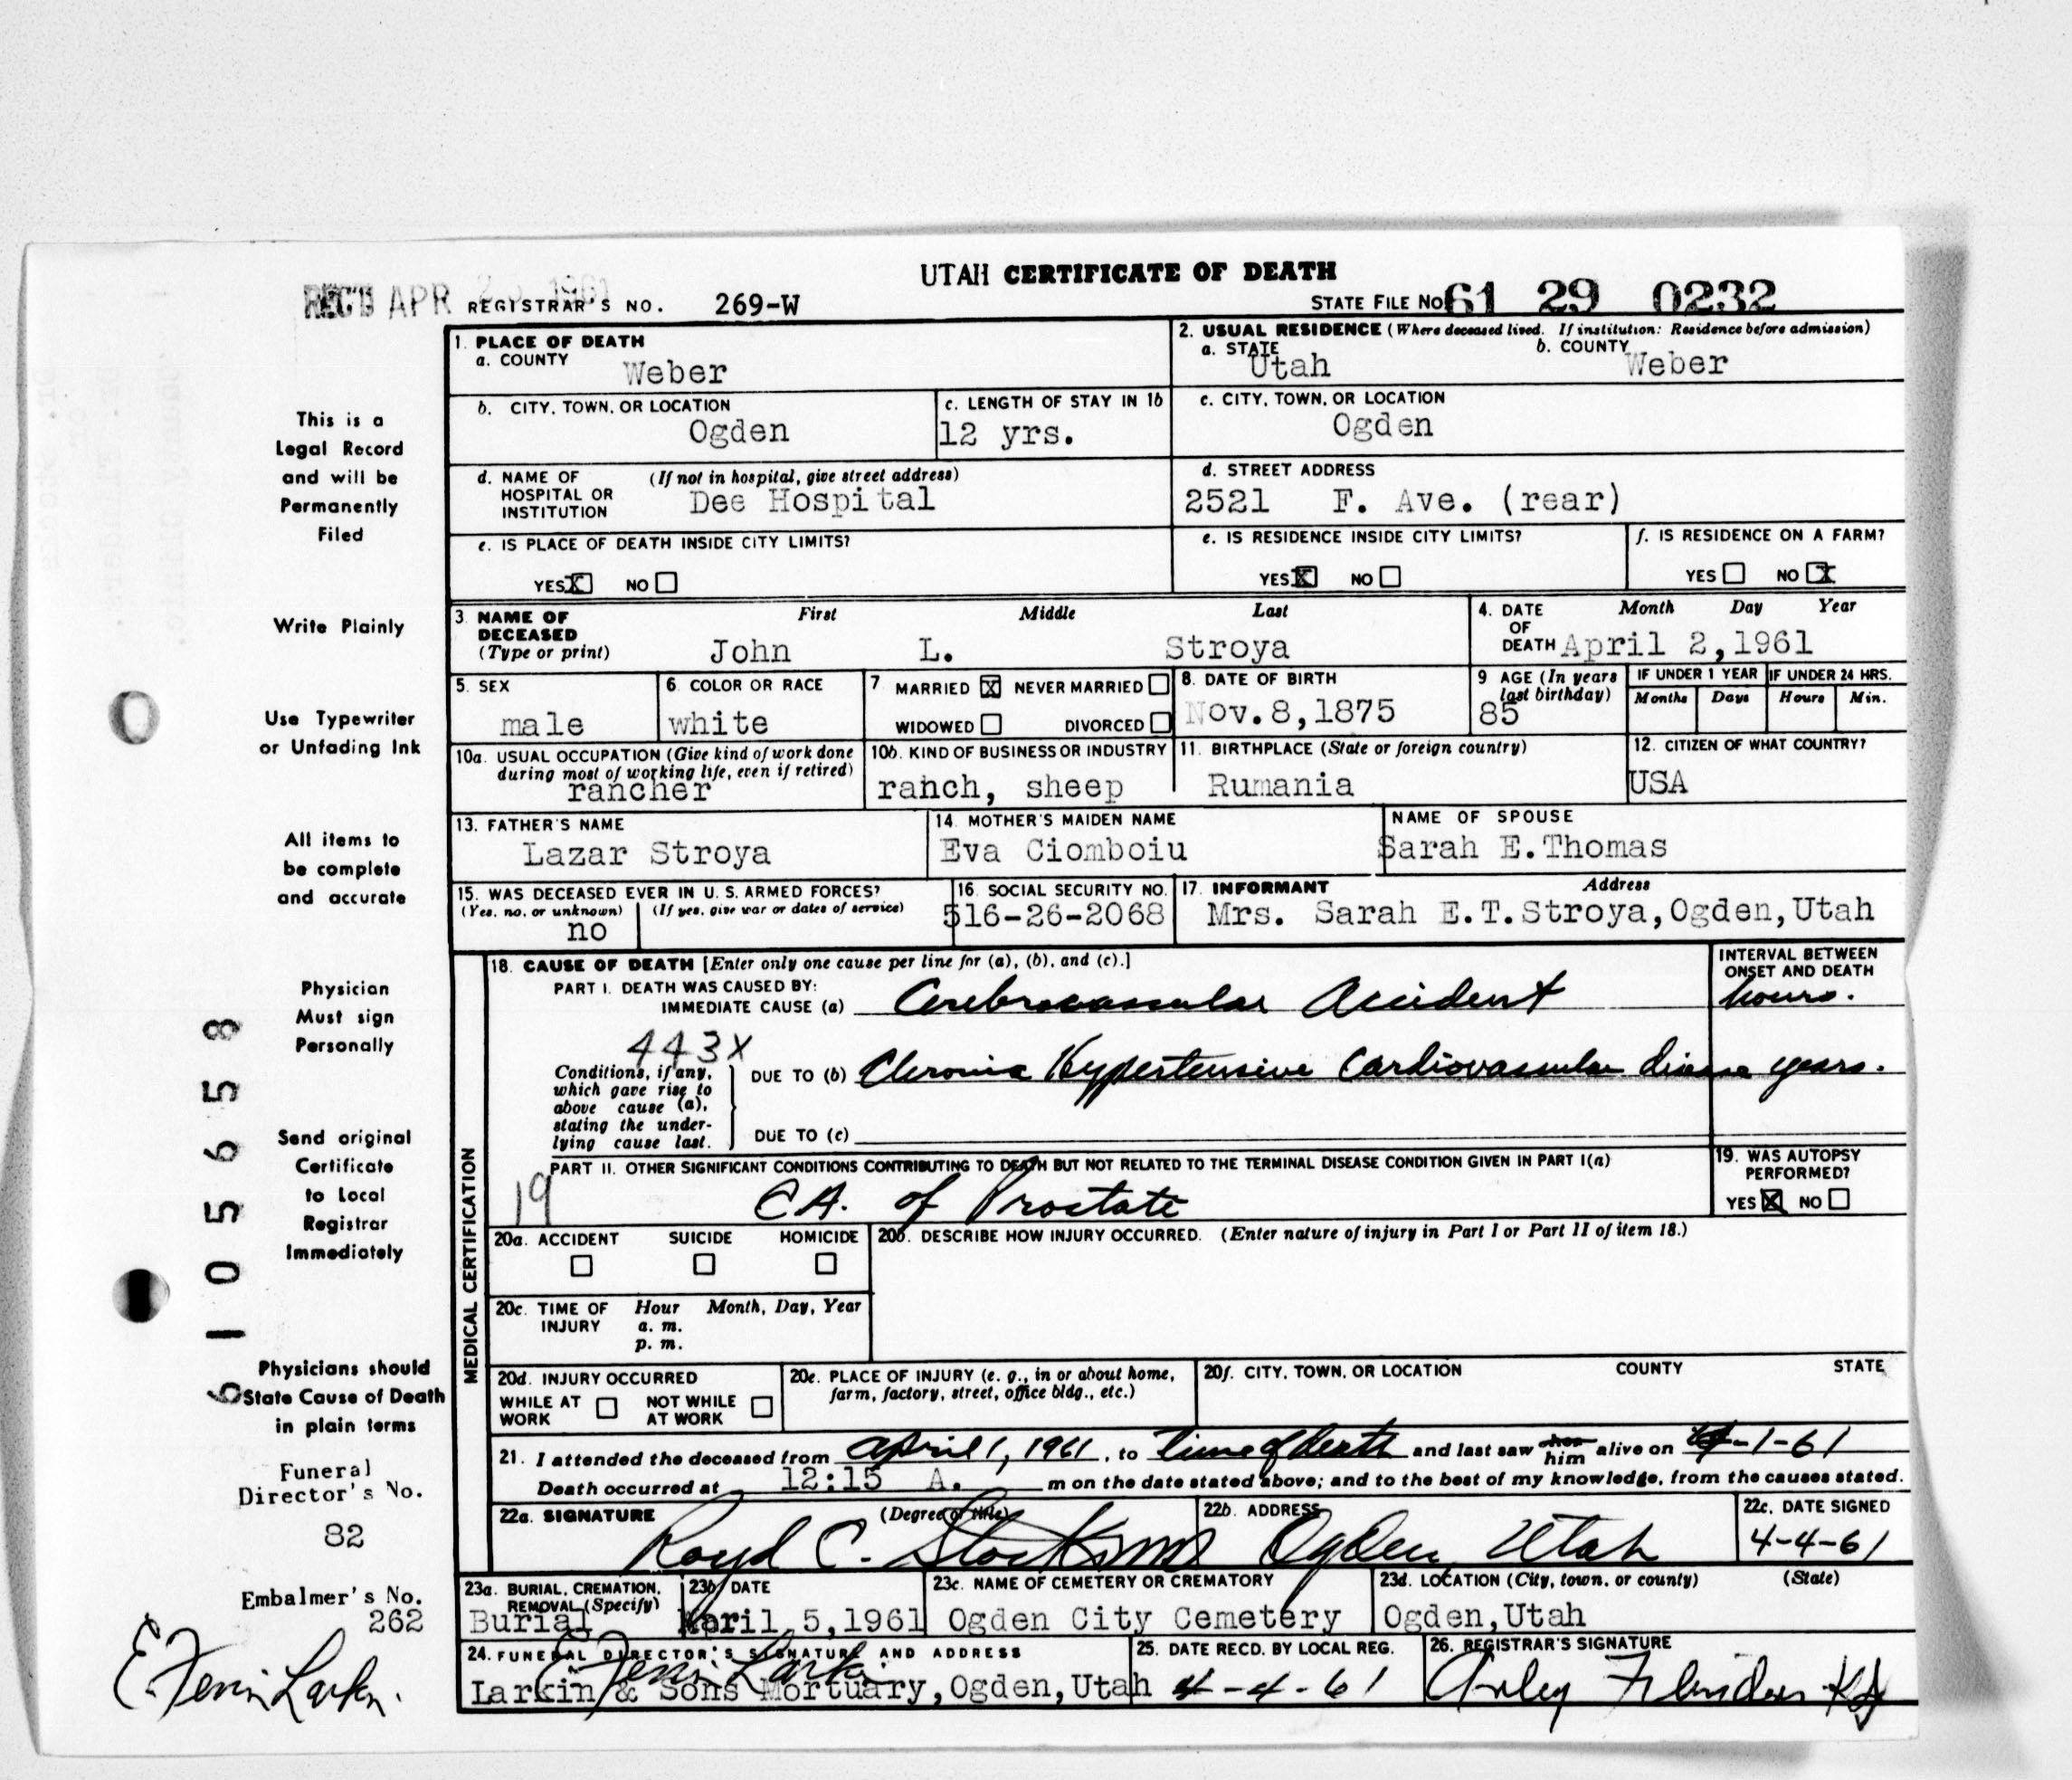 UTAH CERTIFICATE OF DEATH
REC'D APR 1961 REGISTRAR'S NO. 269-W STATE FILE NO 61 29 0232
1. PLACE OF DEATH
a. COUNTY Weber
2. USUAL RESIDENCE (Where deceased lived. If institution: Residence before admission)
a. STATE Utah b. COUNTY Weber
b. CITY, TOWN, OR LOCATION Ogden
c. LENGTH OF STAY IN 1b 12 yrs.
c. CITY, TOWN, OR LOCATION Ogden
d. NAME OF HOSPITAL OR INSTITUTION (If not in hospital, give street address) Dee Hospital
d. STREET ADDRESS 2521 F. Ave. (rear)
e. IS PLACE OF DEATH INSIDE CITY LIMITS?
YES X NO
e. IS RESIDENCE INSIDE CITY LIMITS?
YES X NO
f. IS RESIDENCE ON A FARM?
YES NO X
3. NAME OF DECEASED (Type or print) First Middle Last
John L. Stroya
4. DATE OF DEATH Month Day Year
April 2,1961
5. SEX male
6. COLOR OR RACE white
7 MARRIED X NEVER MARRIED
WIDOWED DIVORCED
8. DATE OF BIRTH Nov.8,1875
9 AGE (In years last birthday) 85
IF UNDER 1 YEAR Months Days
IF UNDER 24 HRS. Hours Min.
10a. USUAL OCCUPATION (Give kind of work done during most of working life, even if retired) rancher
10b. KIND OF BUSINESS OR INDUSTRY ranch, sheep
11. BIRTHPLACE (State or foreign country) Rumania
12. CITIZEN OF WHAT COUNTRY? USA
13. FATHER'S NAME Lazar Stroya
14. MOTHER'S MAIDEN NAME Eva Ciomboiu
NAME OF SPOUSE Sarah E.Thomas
15. WAS DECEASED EVER IN U. S. ARMED FORCES?
(Yes, no, or unknown) (If yes, give war or dates of service)
no
16. SOCIAL SECURITY NO. 516-26-2068
17. INFORMANT Address
Mrs. Sarah E.T.Stroya,Ogden,Utah
MEDICAL CERTIFICATION
18. CAUSE OF DEATH [Enter only one cause per line for (a), (b), and (c).]
INTERVAL BETWEEN ONSET AND DEATH
PART I. DEATH WAS CAUSED BY:
IMMEDIATE CAUSE (a) Cerebrovascular Accident hours.
443X
Conditions, if any, which gave rise to above cause (a), stating the underlying cause last.
DUE TO (b) Chronic Hypertensive Cardiovascular disease years.
DUE TO (c)
PART II. OTHER SIGNIFICANT CONDITIONS CONTRIBUTING TO DEATH BUT NOT RELATED TO THE TERMINAL DISEASE CONDITION GIVEN IN PART I(a)
19 CA. of Prostate
19. WAS AUTOPSY PERFORMED?
YES X NO
20a. ACCIDENT SUICIDE HOMICIDE
20b. DESCRIBE HOW INJURY OCCURRED. (Enter nature of injury in Part I or Part II of item 18.)
20c. TIME OF INJURY Hour Month, Day, Year
a. m.
p. m.
20d. INJURY OCCURRED
WHILE AT WORK NOT WHILE AT WORK
20e. PLACE OF INJURY (e. g., in or about home, farm, factory, street, office bldg., etc.)
20f. CITY, TOWN, OR LOCATION COUNTY STATE
21. I attended the deceased from April 1, 1961, to Time of death and last saw her him alive on 4-1-61
Death occurred at 12:15 A. m on the date stated above; and to the best of my knowledge, from the causes stated.
22a. SIGNATURE (Degree or title)
22b. ADDRESS Ogden, Utah
22c. DATE SIGNED 4-4-61
23a. BURIAL, CREMATION, REMOVAL (Specify) Burial
23b. DATE April 5,1961
23c. NAME OF CEMETERY OR CREMATORY Ogden City Cemetery
23d. LOCATION (City, town, or county) (State)
Ogden,Utah
24. FUNERAL DIRECTOR'S SIGNATURE AND ADDRESS
Larkin & Sons Mortuary,Ogden,Utah
25. DATE RECD. BY LOCAL REG. 4-4-61
26. REGISTRAR'S SIGNATURE
This is a
Legal Record
and will be
Permanently
Filed
Write Plainly
Use Typewriter
or Unfading Ink
All items to
be complete
and accurate
Physician
Must sign
Personally
Send original
Certificate
to Local
Registrar
Immediately
Physicians should
State Cause of Death
in plain terms
Funeral
Director's No.
82
Embalmer's No.
262
6105658